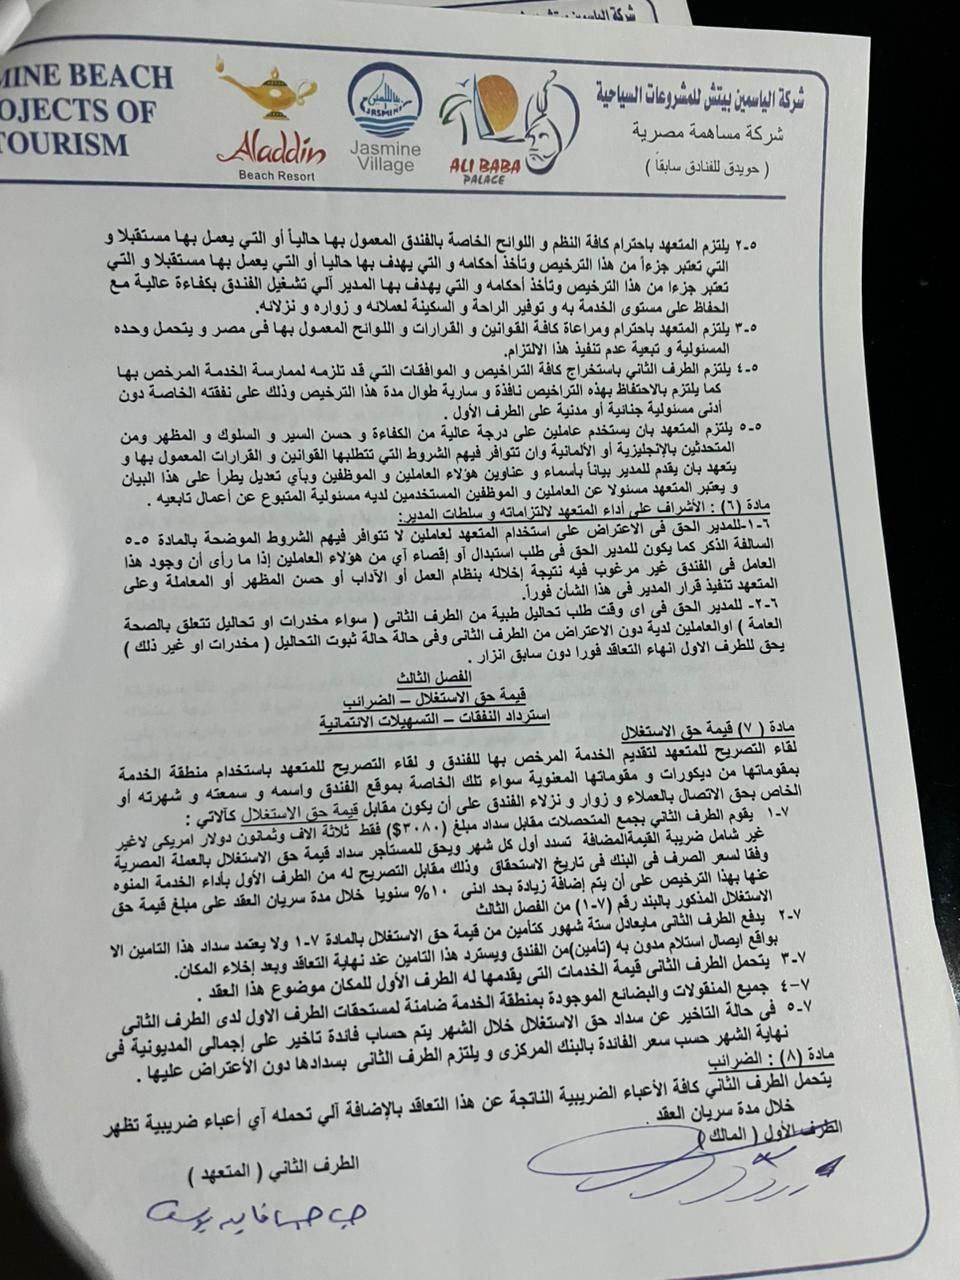 شركة الياسمين بيتش
MINE BEACH
OJECTS OF
TOURISM
Aladdin
Beach Resort
JASMINE
Jasmine
Village
ALI BABA
PALACE
شركة الياسمين بيتش للمشروعات السياحية
شركة مساهمة مصرية
( حويدق للفنادق سابقاً )
٥-٢ يلتزم المتعهد باحترام كافة النظم و اللوائح الخاصة بالفندق المعمول بها حالياً أو التي يعمل بها مستقبلا و
التي تعتبر جزءاً من هذا الترخيص وتأخذ أحكامه و التي يهدف بها حاليا أو التي يعمل بها مستقبلا و التي
تعتبر جزءا من هذا الترخيص وتأخذ أحكامه و التي يهدف بها المدير آلي تشغيل الفندق بكفاءة عالية مع
الحفاظ على مستوى الخدمة به و توفير الراحة و السكينة لعملائه و زواره و نزلائه.
٥-٣ يلتزم المتعهد باحترام ومراعاة كافة القوانين و القرارات و اللوائح المعمول بها فى مصر و يتحمل وحده
المسئولية و تبعية عدم تنفيذ هذا الالتزام.
٥-٤ يلتزم الطرف الثاني باستخراج كافة التراخيص و الموافقات التي قد تلزمه لممارسة الخدمة المرخص بها
كما يلتزم بالاحتفاظ بهذه التراخيص نافذة و سارية طوال مدة هذا الترخيص وذلك على نفقته الخاصة دون
أدنى مسئولية جنائية أو مدنية على الطرف الأول .
٥-٥ يلتزم المتعهد بان يستخدم عاملين على درجة عالية من الكفاءة و حسن السير و السلوك و المظهر ومن
المتحدثين بالإنجليزية أو الألمانية وان تتوافر فيهم الشروط التي تتطلبها القوانين و القرارات المعمول بها و
يتعهد بان يقدم للمدير بياناً بأسماء و عناوين هؤلاء العاملين و الموظفين وبآي تعديل يطرأ على هذا البيان
و يعتبر المتعهد مسئولا عن العاملين و الموظفين المستخدمين لديه مسئولية المتبوع عن أعمال تابعيه .
مادة (٦) : الأشراف على أداء المتعهد لالتزاماته و سلطات المدير:
٦-١-للمدير الحق فى الاعتراض على استخدام المتعهد لعاملين لا تتوافر فيهم الشروط الموضحة بالمادة ٥-٥
السالفة الذكر كما يكون للمدير الحق في طلب استبدال آو إقصاء آي من هؤلاء العاملين إذا ما رأى أن وجود هذا
العامل فى الفندق غير مرغوب فيه نتيجة إخلاله بنظام العمل أو الآداب أو حسن المظهر أو المعاملة وعلى
المتعهد تنفيذ قرار المدير فى هذا الشأن فوراً.
٦-٢- للمدير الحق فى اى وقت طلب تحاليل طبية من الطرف الثانى ( سواء مخدرات او تحاليل تتعلق بالصحة
العامة ) اوالعاملين لدية دون الاعتراض من الطرف الثانى وفى حالة حالة ثبوت التحاليل ( مخدرات او غير ذلك )
يحق للطرف الاول انهاء التعاقد فورا دون سابق انزار .
الفصل الثالث
قيمة حق الاستغلال – الضرائب
استرداد النفقات – التسهيلات الائتمانية
مادة ( ٧) قيمة حق الاستغلال
لقاء التصريح للمتعهد لتقديم الخدمة المرخص بها للفندق و لقاء التصريح للمتعهد باستخدام منطقة الخدمة
بمقوماتها من ديكورات و مقوماتها المعنوية سواء تلك الخاصة بموقع الفندق واسمه و سمعته و شهرته أو
الخاص بحق الاتصال بالعملاء و زوار و نزلاء الفندق على أن يكون مقابل قيمة حق الاستغلال كآلاتي :
٧-١ يقوم الطرف الثاني بجمع المتحصلات مقابل سداد مبلغ (٣٠٨٠$) فقط ثلاثة الاف وثمانون دولار امريكى لاغير
غير شامل ضريبة القيمةالمضافة تسدد أول كل شهر ويحق للمستأجر سداد قيمة حق الاستغلال بالعملة المصرية
وفقا لسعر الصرف فى البنك فى تاريخ الاستحقاق وذلك مقابل التصريح له من الطرف الأول بأداء الخدمة المنوه
عنها بهذا الترخيص على أن يتم إضافة زيادة بحد ادنى ١٠% سنويا خلال مدة سريان العقد على مبلغ قيمة حق
الاستغلال المذكور بالبند رقم (٧-١) من الفصل الثالث
٧-٢ يدفع الطرف الثانى مايعادل ستة شهور كتأمين من قيمة حق الاستغلال بالمادة ٧-١ ولا يعتمد سداد هذا التامين الا
بواقع ايصال استلام مدون به (تأمين)من الفندق ويسترد هذا التامين عند نهاية التعاقد وبعد إخلاء المكان.
٧-٣ يتحمل الطرف الثانى قيمة الخدمات التى يقدمها له الطرف الأول للمكان موضوع هذا العقد .
٧-٤ جميع المنقولات والبضائع الموجودة بمنطقة الخدمة ضامنة لمستحقات الطرف الاول لدى الطرف الثانى
٧-٥ فى حالة التاخير عن سداد حق الاستغلال خلال الشهر يتم حساب فائدة تاخير على إجمالى المديونية فى
نهاية الشهر حسب سعر الفائدة بالبنك المركزى و يلتزم الطرف الثانى بسدادها دون الأعتراض عليها .
مادة (٨) : الضرائب
يتحمل الطرف الثاني كافة الأعباء الضريبية الناتجة عن هذا التعاقد بالإضافة آلي تحمله آي أعباء ضريبية تظهر
خلال مدة سريان العقد .
الطرف الأول ( المالك )
الطرف الثاني ( المتعهد )